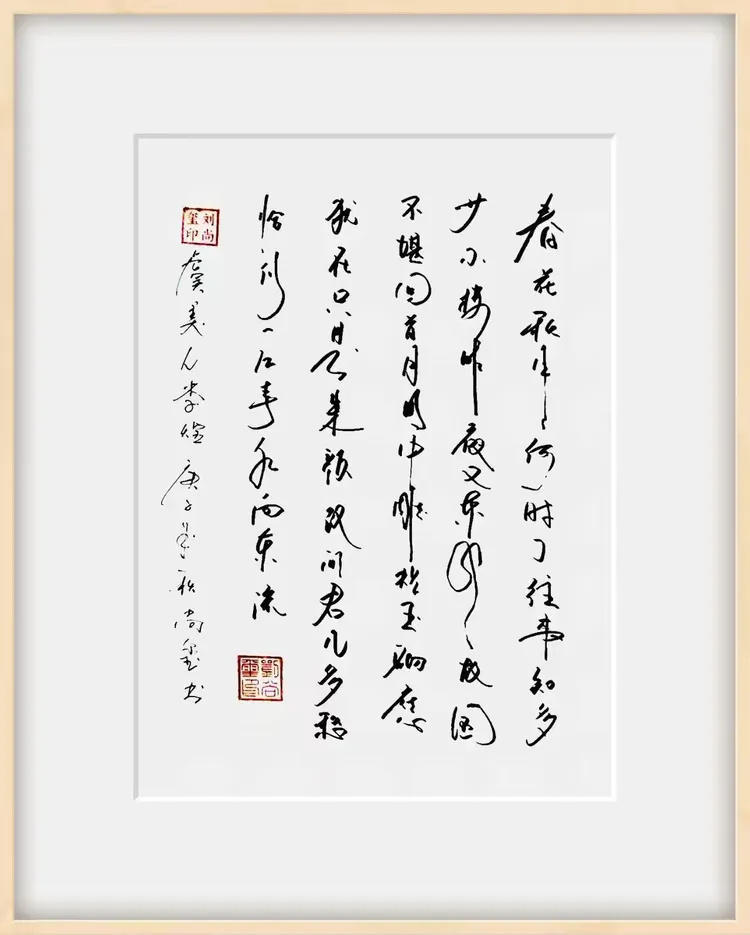 春花秋月何时了往事知多
少小楼昨夜又东风故国
不堪回首月明中雕栏玉砌应
犹在只是朱颜改问君几多愁
恰似一江春水向东流
劉尚璽印
刘尚玺印
虞美人李煜庚子秋尚玺书